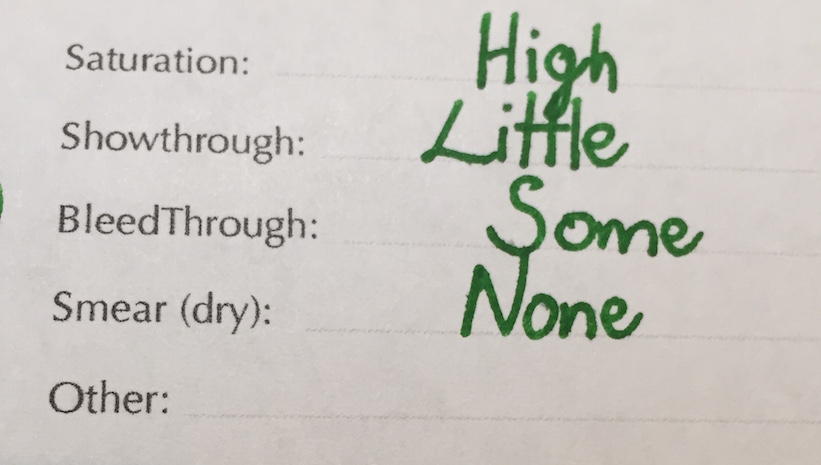 Saturation: High
Showthrough: Little
BleedThrough: Some
Smear (dry): None
Other: